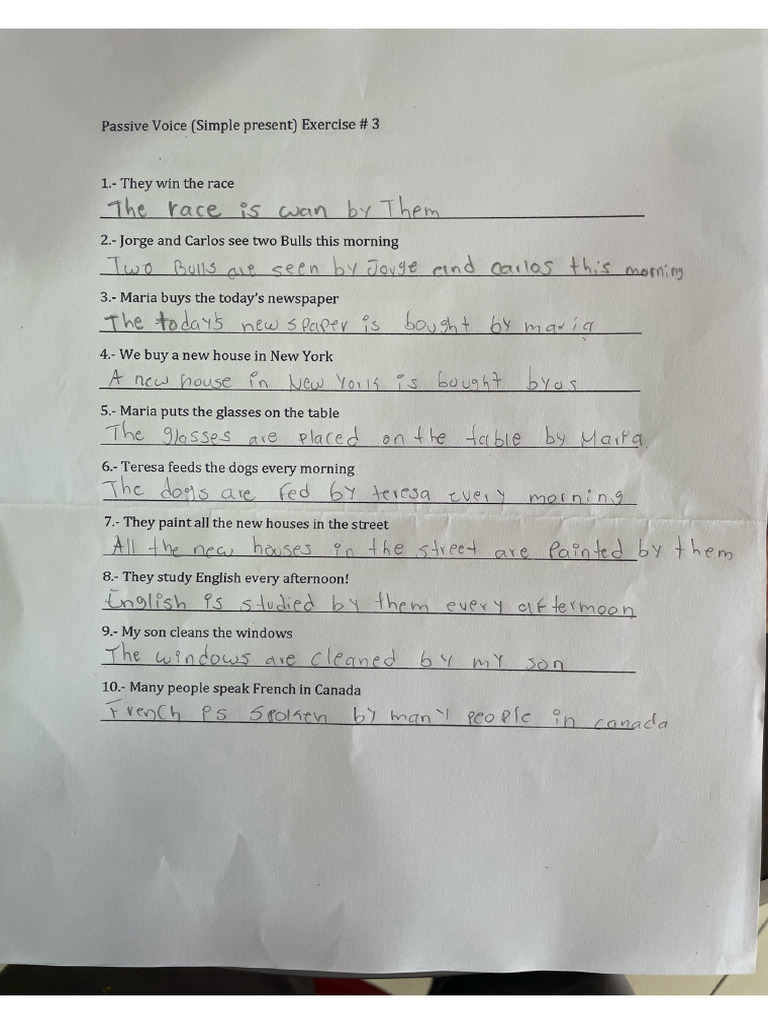 Passive Voice (Simple present) Exercise # 3
1.- They win the race
The race is wan by Them
2.- Jorge and Carlos see two Bulls this morning
Two Bulls are seen by Jorge and carlos this morning
3.- Maria buys the today's newspaper
The today's newspaper is bought by maria
4.- We buy a new house in New York
A new house in New York is bought by us
5.- Maria puts the glasses on the table
The glasses are placed on the table by Maria
6.- Teresa feeds the dogs every morning
The dogs are fed by teresa every morning
7.- They paint all the new houses in the street
All the new houses in the street are Painted by them
8.- They study English every afternoon!
English is studied by them every aftermoon
9.- My son cleans the windows
The windows are cleaned by my son
10.- Many people speak French in Canada
French is spoken by many people in canada